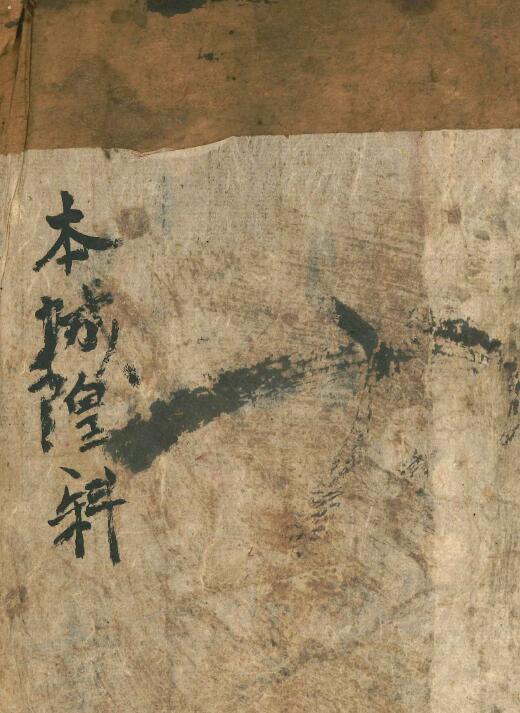 本城隍科